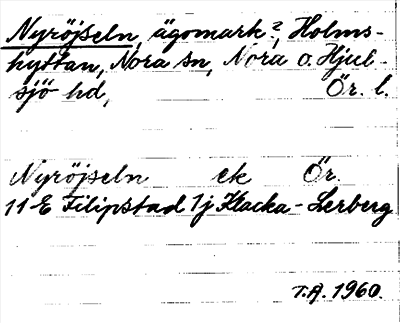 Nyröjseln, ägomark?, Holms-
hyttan, Nora sn, Nora o. Hjul-
sjö hd, Ör. l.
Nyröjseln ek Ör.
11 E Filipstad 1j Klacka-Lerberg
T.A. 1960.